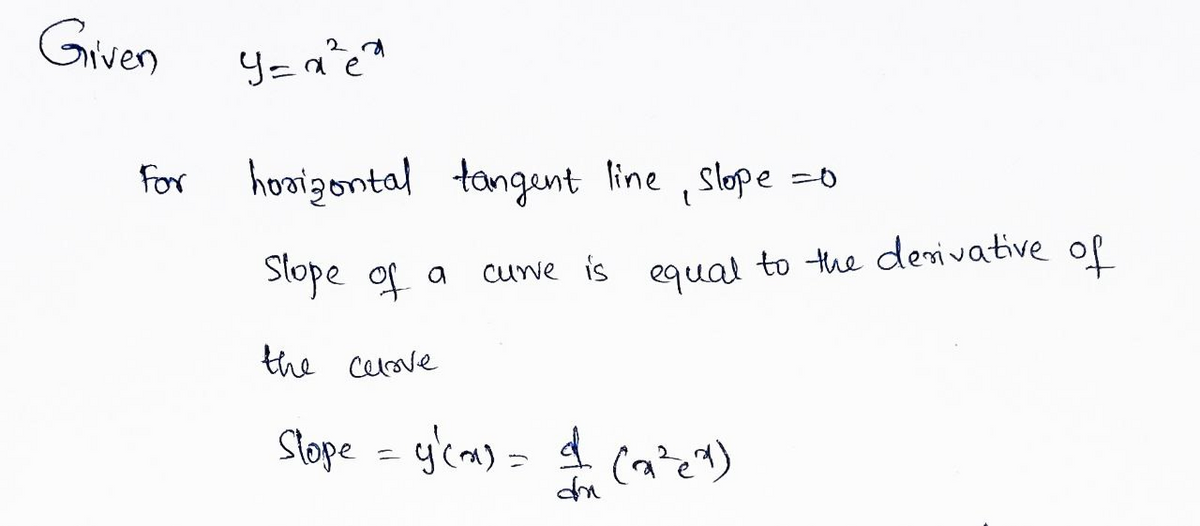 Given y = x²eˣ
For horizontal tangent line, slope = 0
Slope of a curve is equal to the derivative of
the curve
Slope = y'(x) = d/dx (x²eˣ)